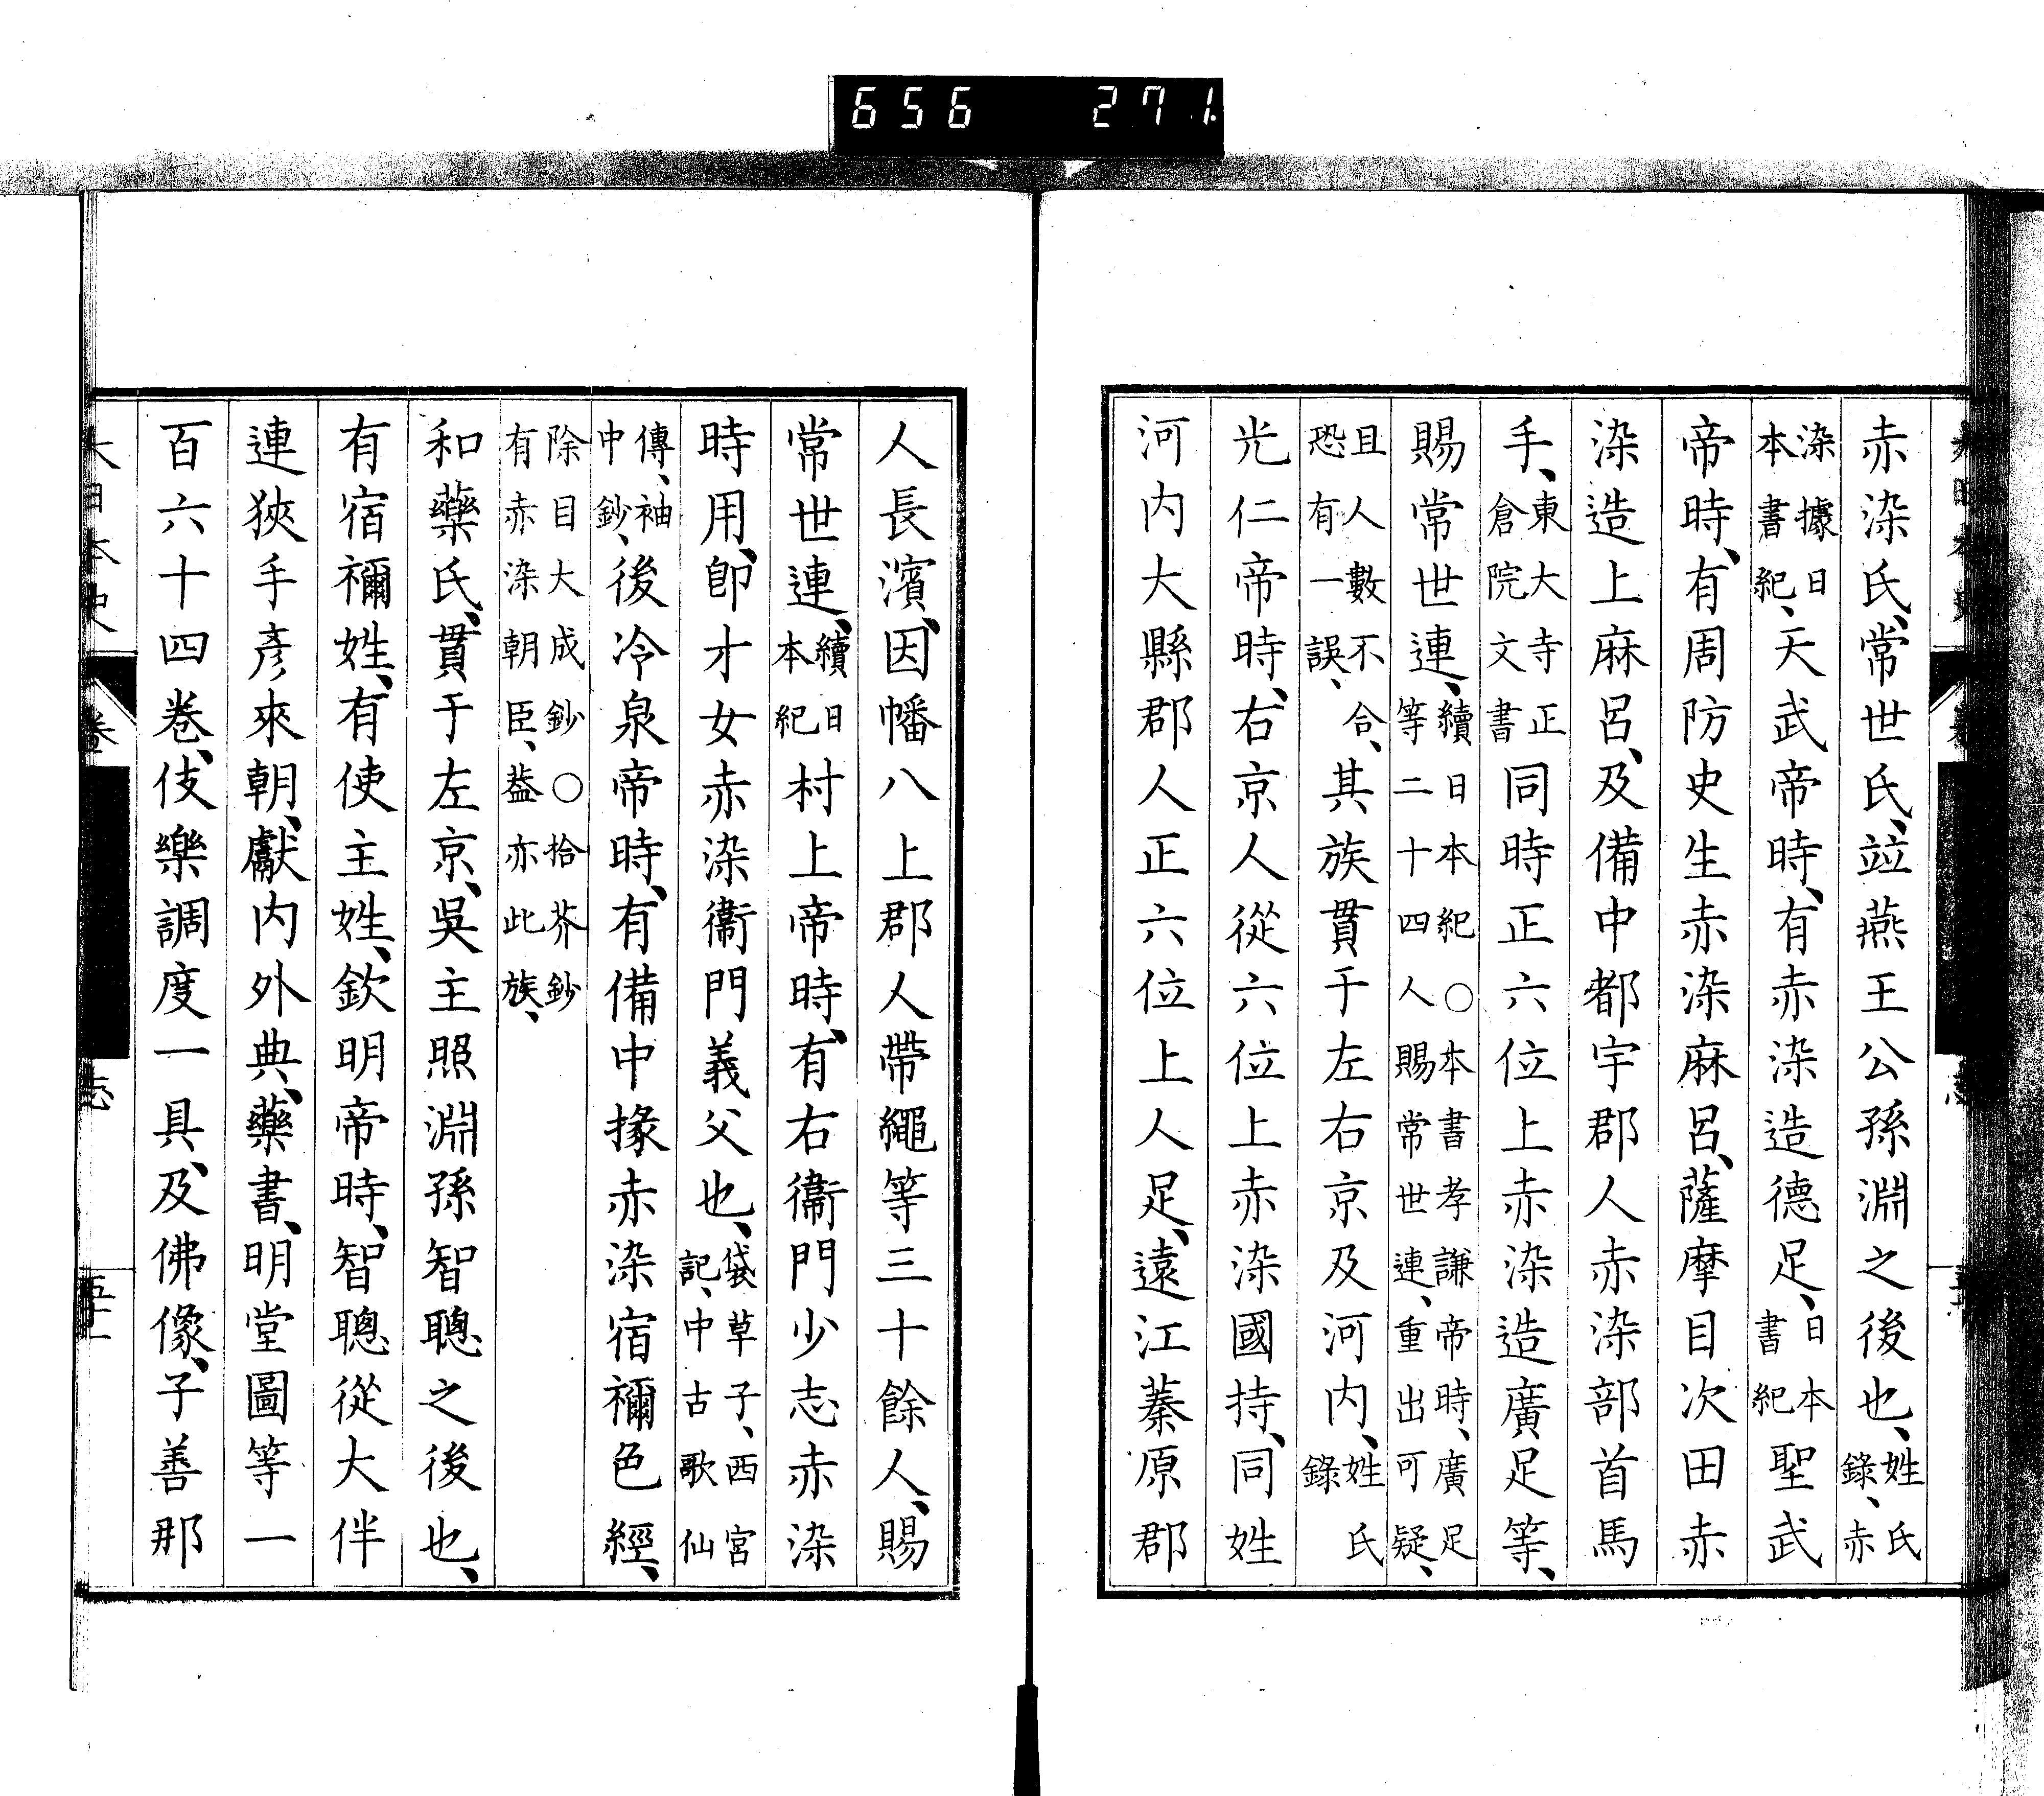 656 271
赤染氏、常世氏、竝燕王公孫淵之後也、姓氏錄、赤
染據日本書紀、天武帝時、有赤染造德足、日本書紀聖武
帝時、有周防史生赤染麻呂、薩摩目次田赤
染造上麻呂、及備中都宇郡人赤染部首馬
手、東大寺正倉院文書同時正六位上赤染造廣足等、
賜常世連、續日本紀○本書孝謙帝時、廣足等二十四人賜常世連、重出可疑、
且人數不合、恐有一誤、其族貫于左右京及河内、姓氏錄
光仁帝時、右京人從六位上赤染國持、同姓
河内大縣郡人正六位上人足、遠江蓁原郡
人長濱、因幡八上郡人帶繩等三十餘人、賜
常世連、續日本紀村上帝時、有右衞門少志赤染
時用、卽才女赤染衞門義父也、袋草子、西宮記、中古歌仙
傳、袖中鈔、後冷泉帝時、有備中掾赤染宿禰色經、
除目大成鈔○拾芥鈔有赤染朝臣、葢亦此族、
和藥氏、貫于左京、吳主照淵孫智聰之後也、
有宿禰姓、有使主姓、欽明帝時、智聰從大伴
連狹手彥來朝、獻内外典、藥書、明堂圖等一
百六十四卷、伎樂調度一具、及佛像、子善那
大日本史 卷 志 五十一